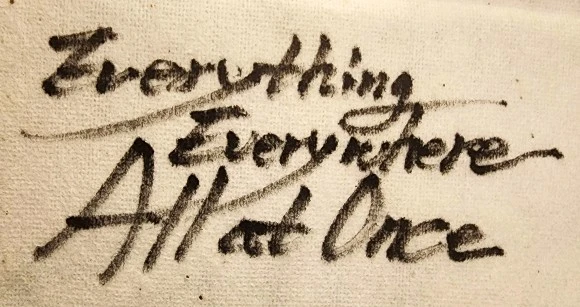 Everything
Everywhere
All at Once